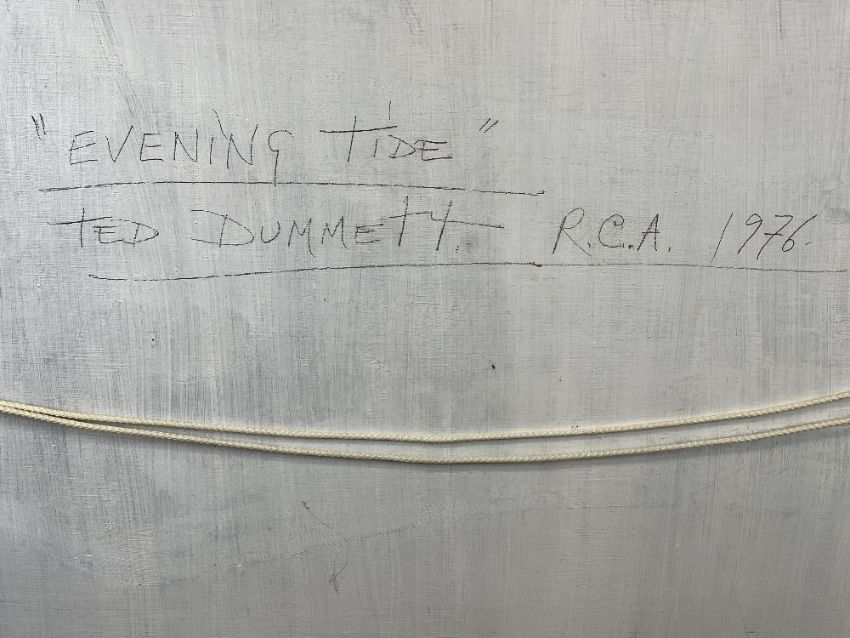 "EVENING TIDE"
TED DUMMETT. R.C.A. 1976.